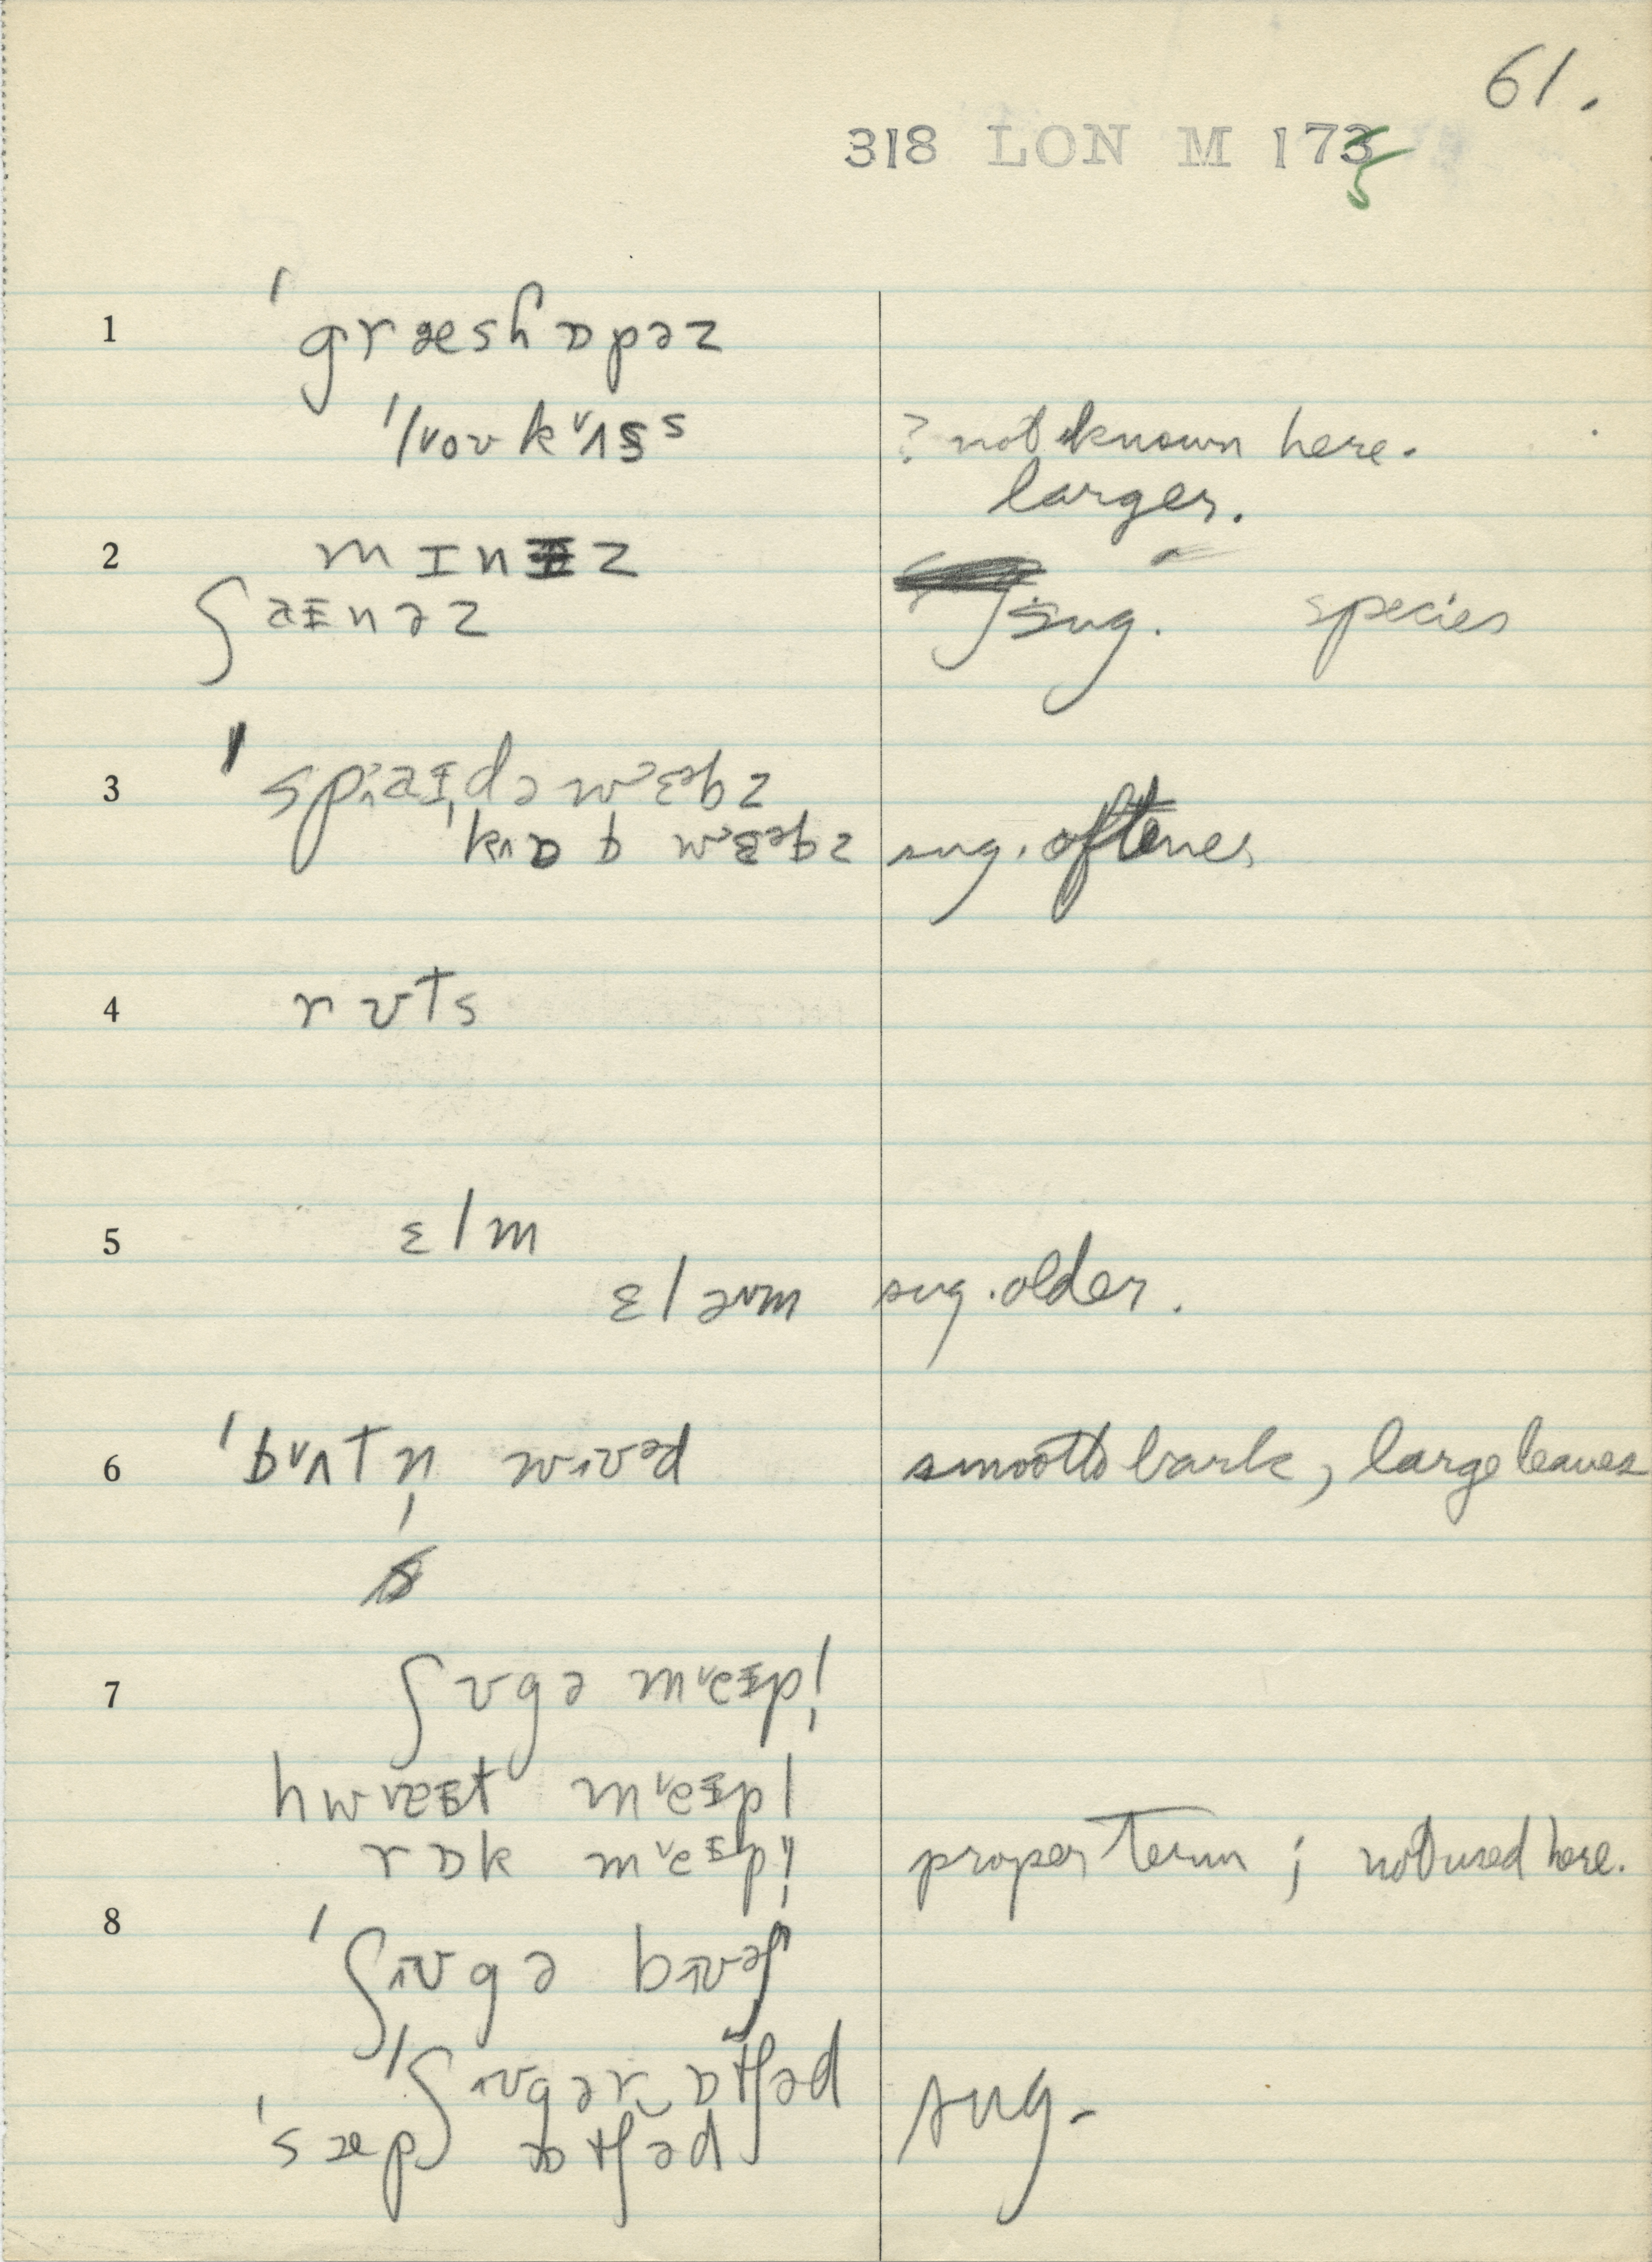 61.
318 LON M 173
1 ˈgræshɒpəz
ˈloʊkʌss ? not known here.
larger.
2 mɪnɨz
ʃaɪnəz sug. species
3 ˈspaɪdəwɛəbz
ˈkɒbwɛəbz sug. oftener
4 rʊts
5 ɛlm
ɛləm sug. older.
6 ˈbʌtn̩wʊəd smooth bark, large leaves
7 ʃʊgə meɪpl̩
hwaɪt meɪpl
rɒk meɪpl̩ proper term; not used here.
8 ˈʃʊgə bʊəʃ
ˈʃʊgər‿ɒtʃəd sug.
ˈsæp ɒtʃəd